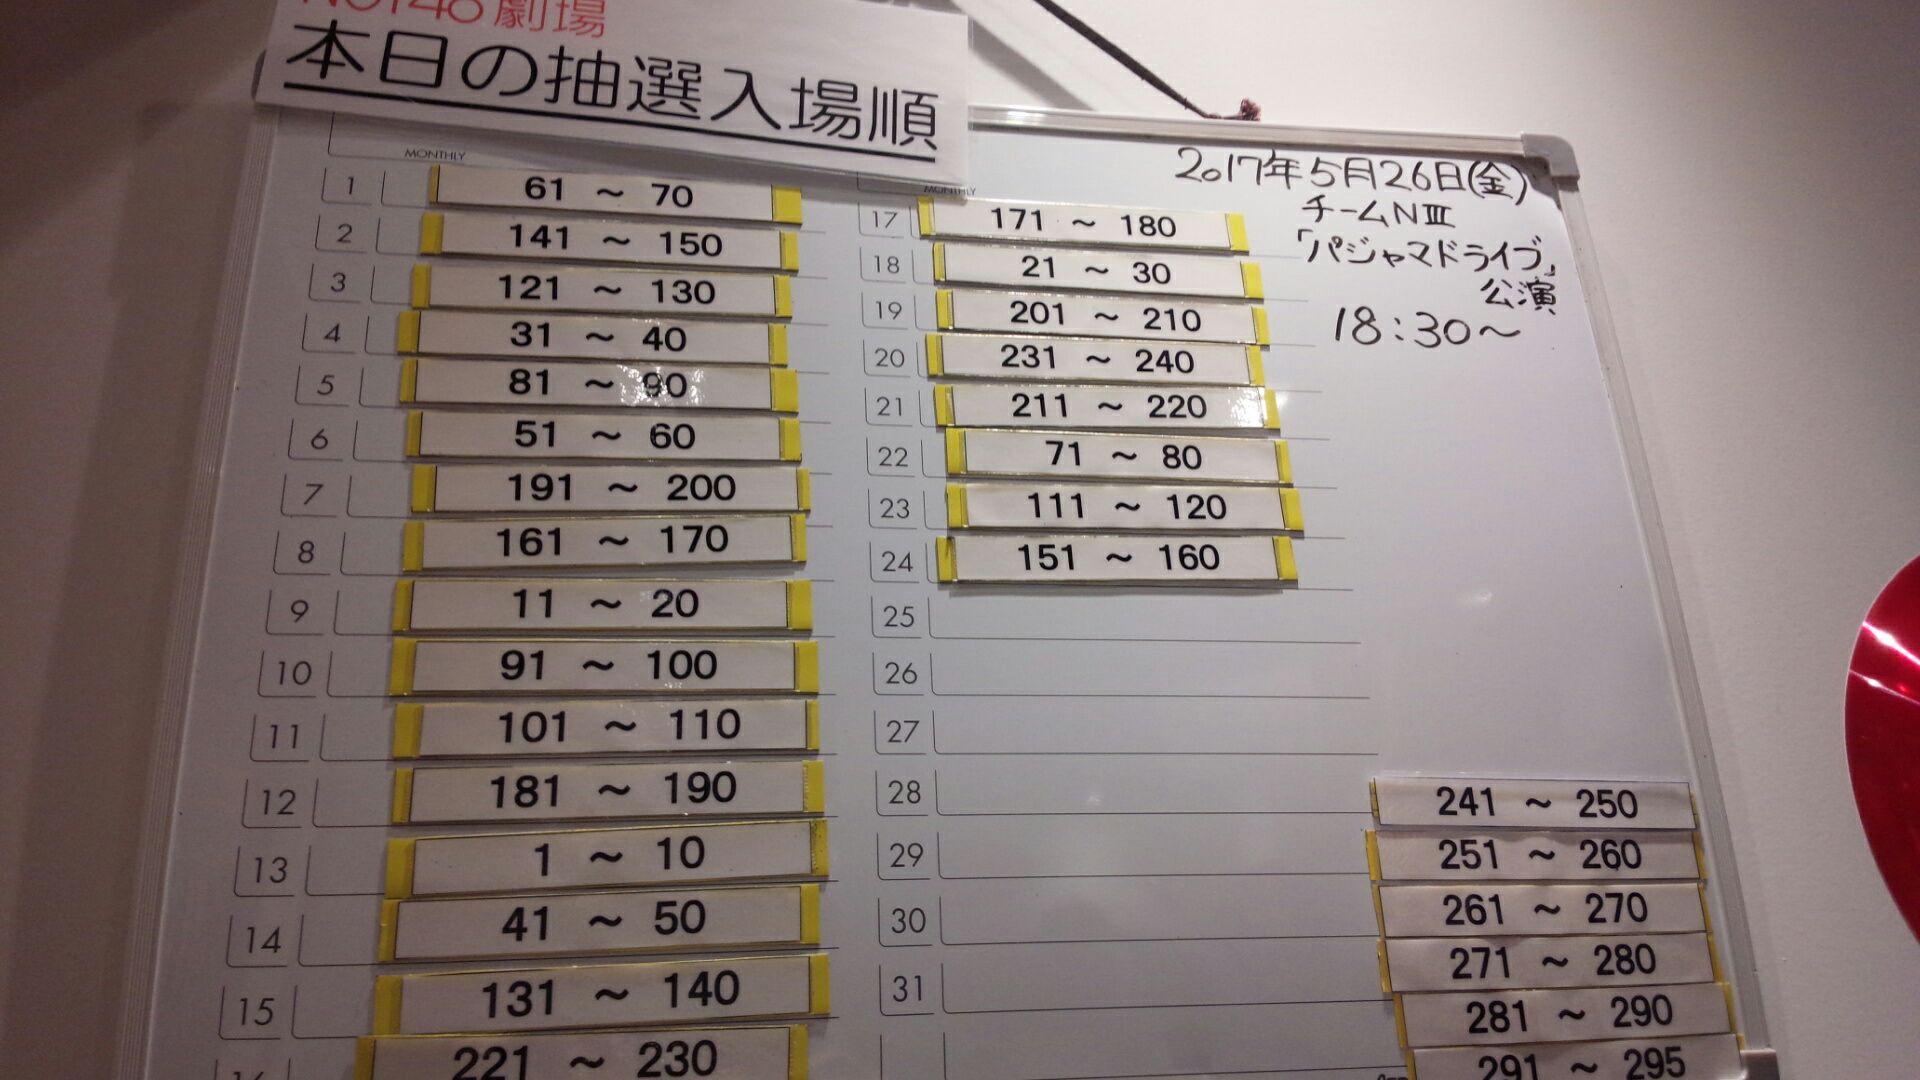 NGT48劇場
本日の抽選入場順
MONTHLY
1 61 ～ 70
2 141 ～ 150
3 121 ～ 130
4 31 ～ 40
5 81 ～ 90
6 51 ～ 60
7 191 ～ 200
8 161 ～ 170
9 11 ～ 20
10 91 ～ 100
11 101 ～ 110
12 181 ～ 190
13 1 ～ 10
14 41 ～ 50
15 131 ～ 140
16 221 ～ 230
MONTHLY
17 171 ～ 180
18 21 ～ 30
19 201 ～ 210
20 231 ～ 240
21 211 ～ 220
22 71 ～ 80
23 111 ～ 120
24 151 ～ 160
25
26
27
28
29
30
31
2017年5月26日(金)
チームNⅢ
「パジャマドライブ」
公演
18:30～
241 ～ 250
251 ～ 260
261 ～ 270
271 ～ 280
281 ～ 290
291 ～ 295